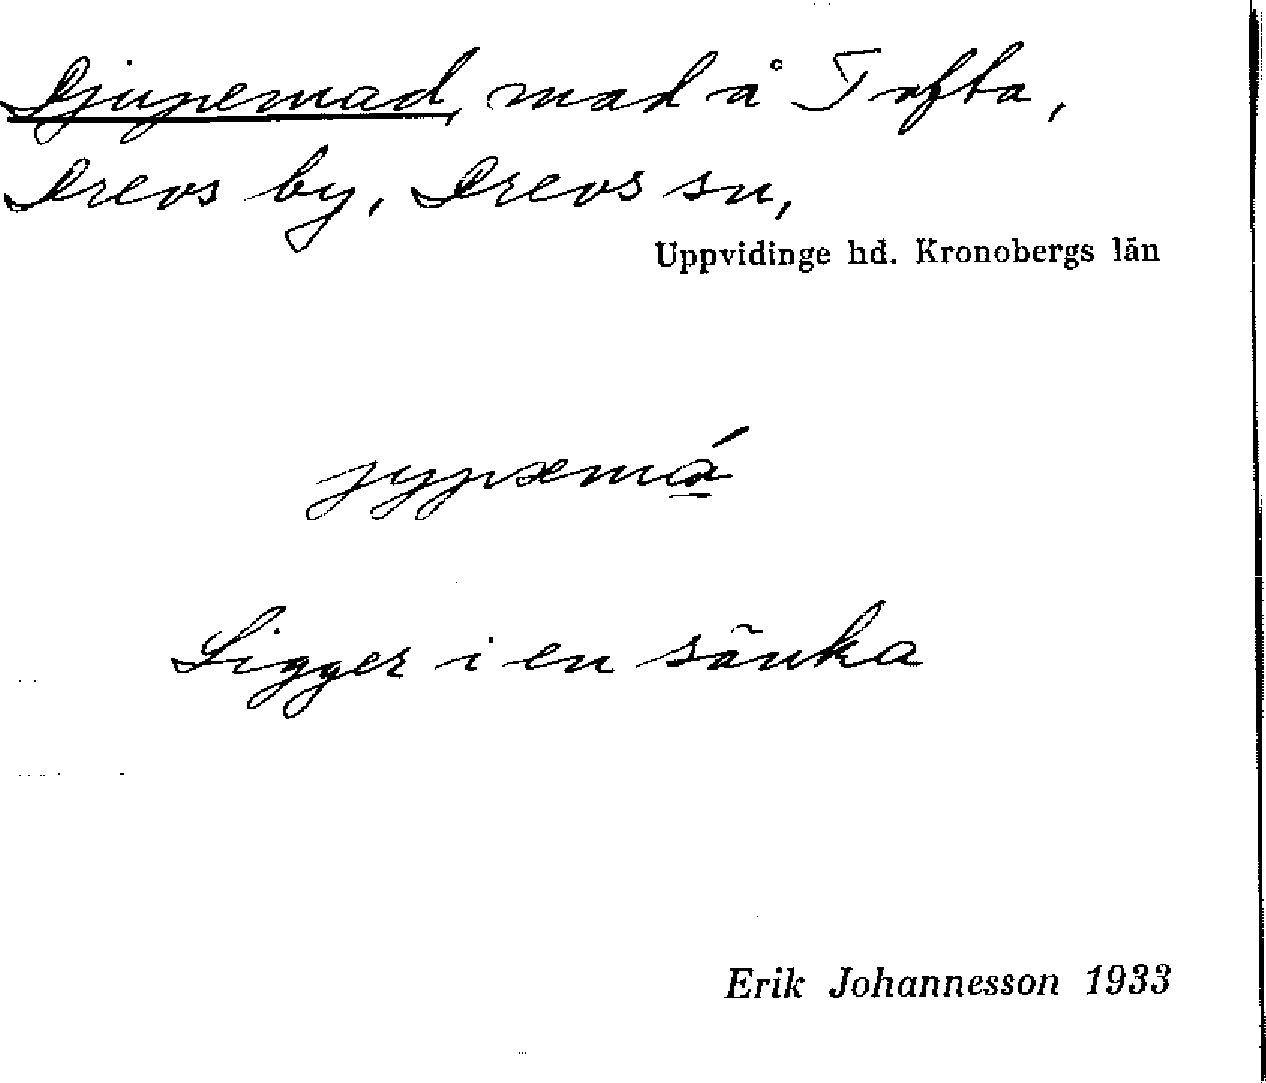 Djupemad, mad å Tofta,
Drevs by, Drevs sn,
Uppvidinge hd. Kronobergs län
Ligger i en sänka
Erik Johannesson 1933